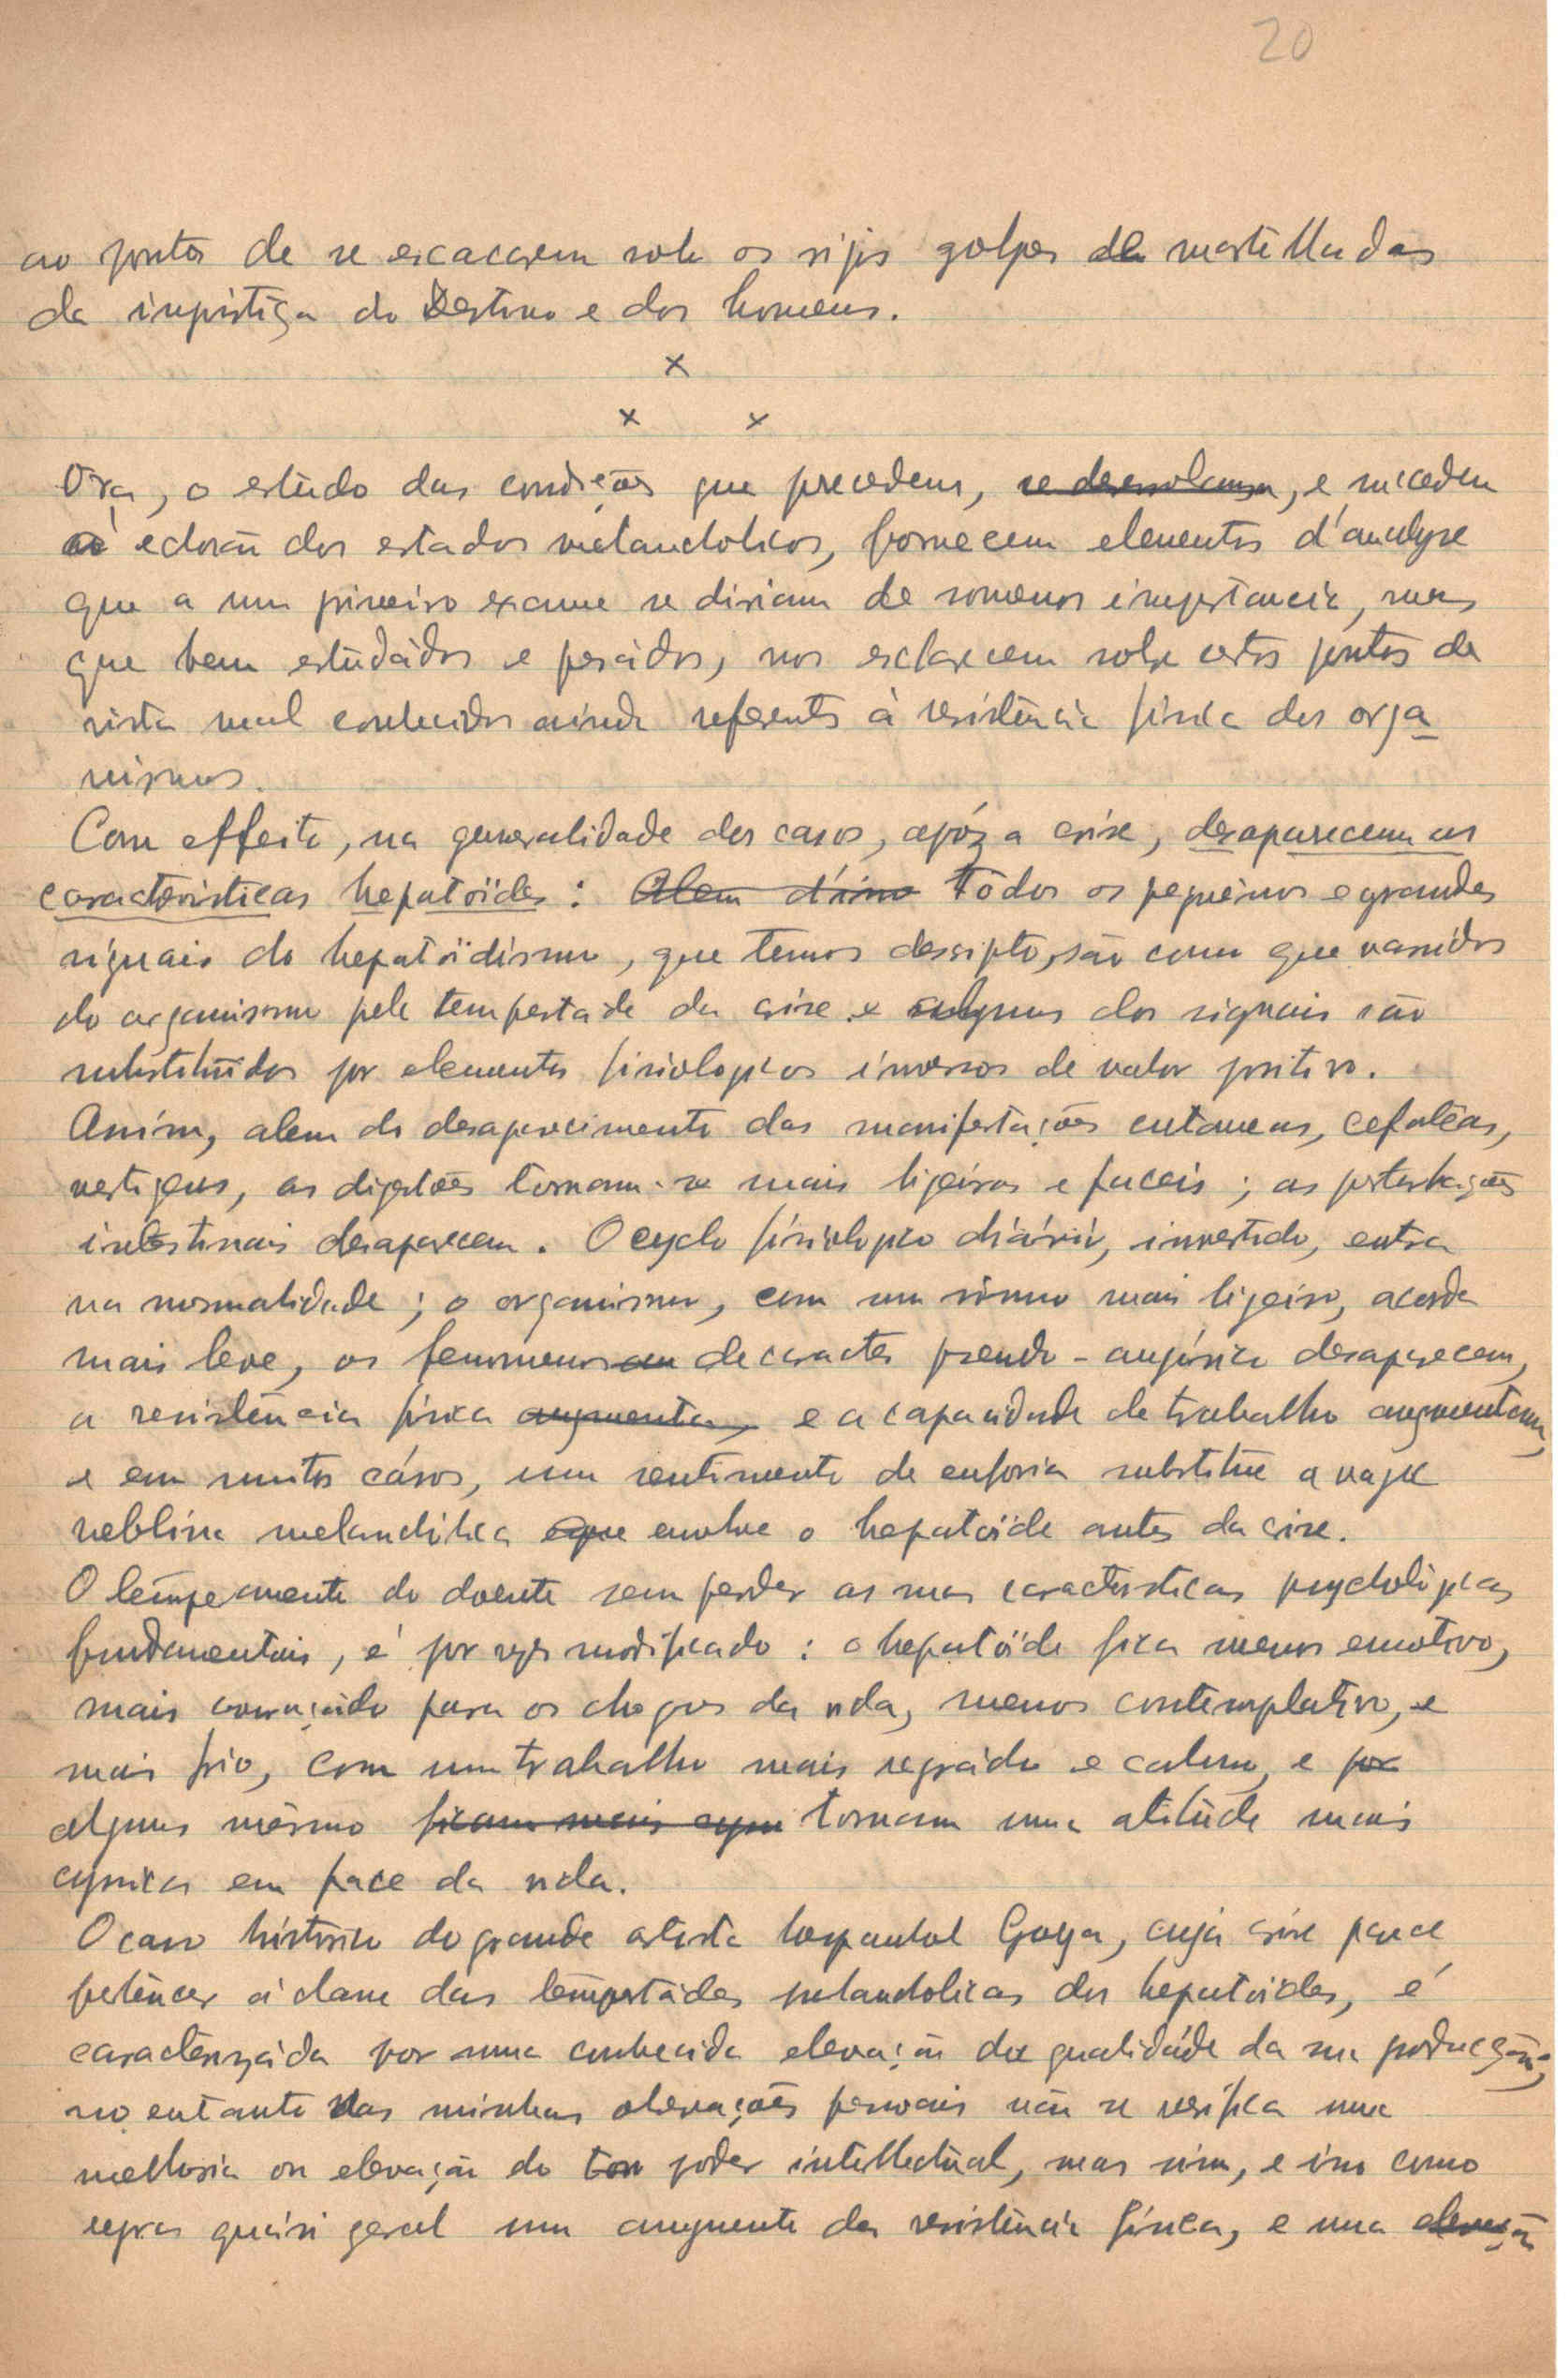 20
ao ponto de se escacarem sob os rijos golpes de martelladas
da injustiça do Destino e dos homens.
x
x x
Ora, o estudo das condições que precedem, se desenrolam, e succedem
à eclosão dos estados melancholicos, fornecem elementos d'analyse
que a um primeiro exame se diriam de somenos importancia, mas
que bem estudádos e pesádos, nos esclarecem sobre certos pontos de
vista mal conhecidos ainda referentes à resistência física dos orga
nismos.
Com effeito, na generalidade dos casos, após a crise, desaparecem as
caracteristicas hepatoïdes: Alem d'isso Todos os pequênos e grandes
signais do hepatoïdismo, que temos descripto, são como que varridos
do organismo pela tempestade da crise e alguns dos signais são
substituidos por elementos fisiologicos inversos de valor positivo.
Assim, alem do desaparecimento das manifestações cutaneas, cefalêas,
vertigens, as digestões tornam-se mais ligeiras e faceis; as perturbações
intestinais desaparecem. O cyclo fisiologico diário, invertido, entra
na normalidade; o organismo, com um rismo mais ligeiro, acorda
mais leve, os fenomenos de caracter pseudo-anginico desaparecem,
a resistência física augmenta, e a capacidade de trabalho augmentam,
e em muitos cásos, um sentimento de euforia substitue a vaga
neblina melancólica que envolve o hepatoide antes da crise.
O têmperamento do doente sem perder as suas caracteristicas psychologicas
fundamentais, é por vezes modificado: o hepatoïde fica menos emotivo,
mais couraçádo para os choques da vida, menos contemplativo, e
mais frio, com um trabalho mais regrádo e calmo, e por
alguns mêsmo ficam mais cyn tornam uma atitude mais
cynica em face da vida.
O caso histórico do grande artista hespanhol Goya, cuja crise parece
pertêncer á classe das tempestádes melancholicas dos hepatoides, é
caracterizáda por uma conhecida elevação da qualidáde da sua producção;
no entanto das minhas observações pessoais não se verifica uma
melhoria ou elevação do ton poder intellectual, mas sim, e isso como
regra quási geral um augmento da resistência física, e uma elevação